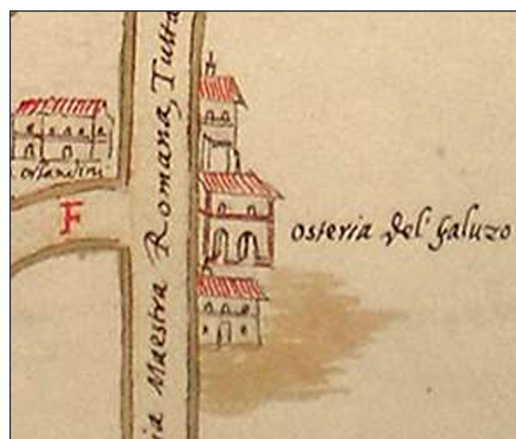 orlandini
F
ia Maestra Romana, Tutta
osteria del Galuzo